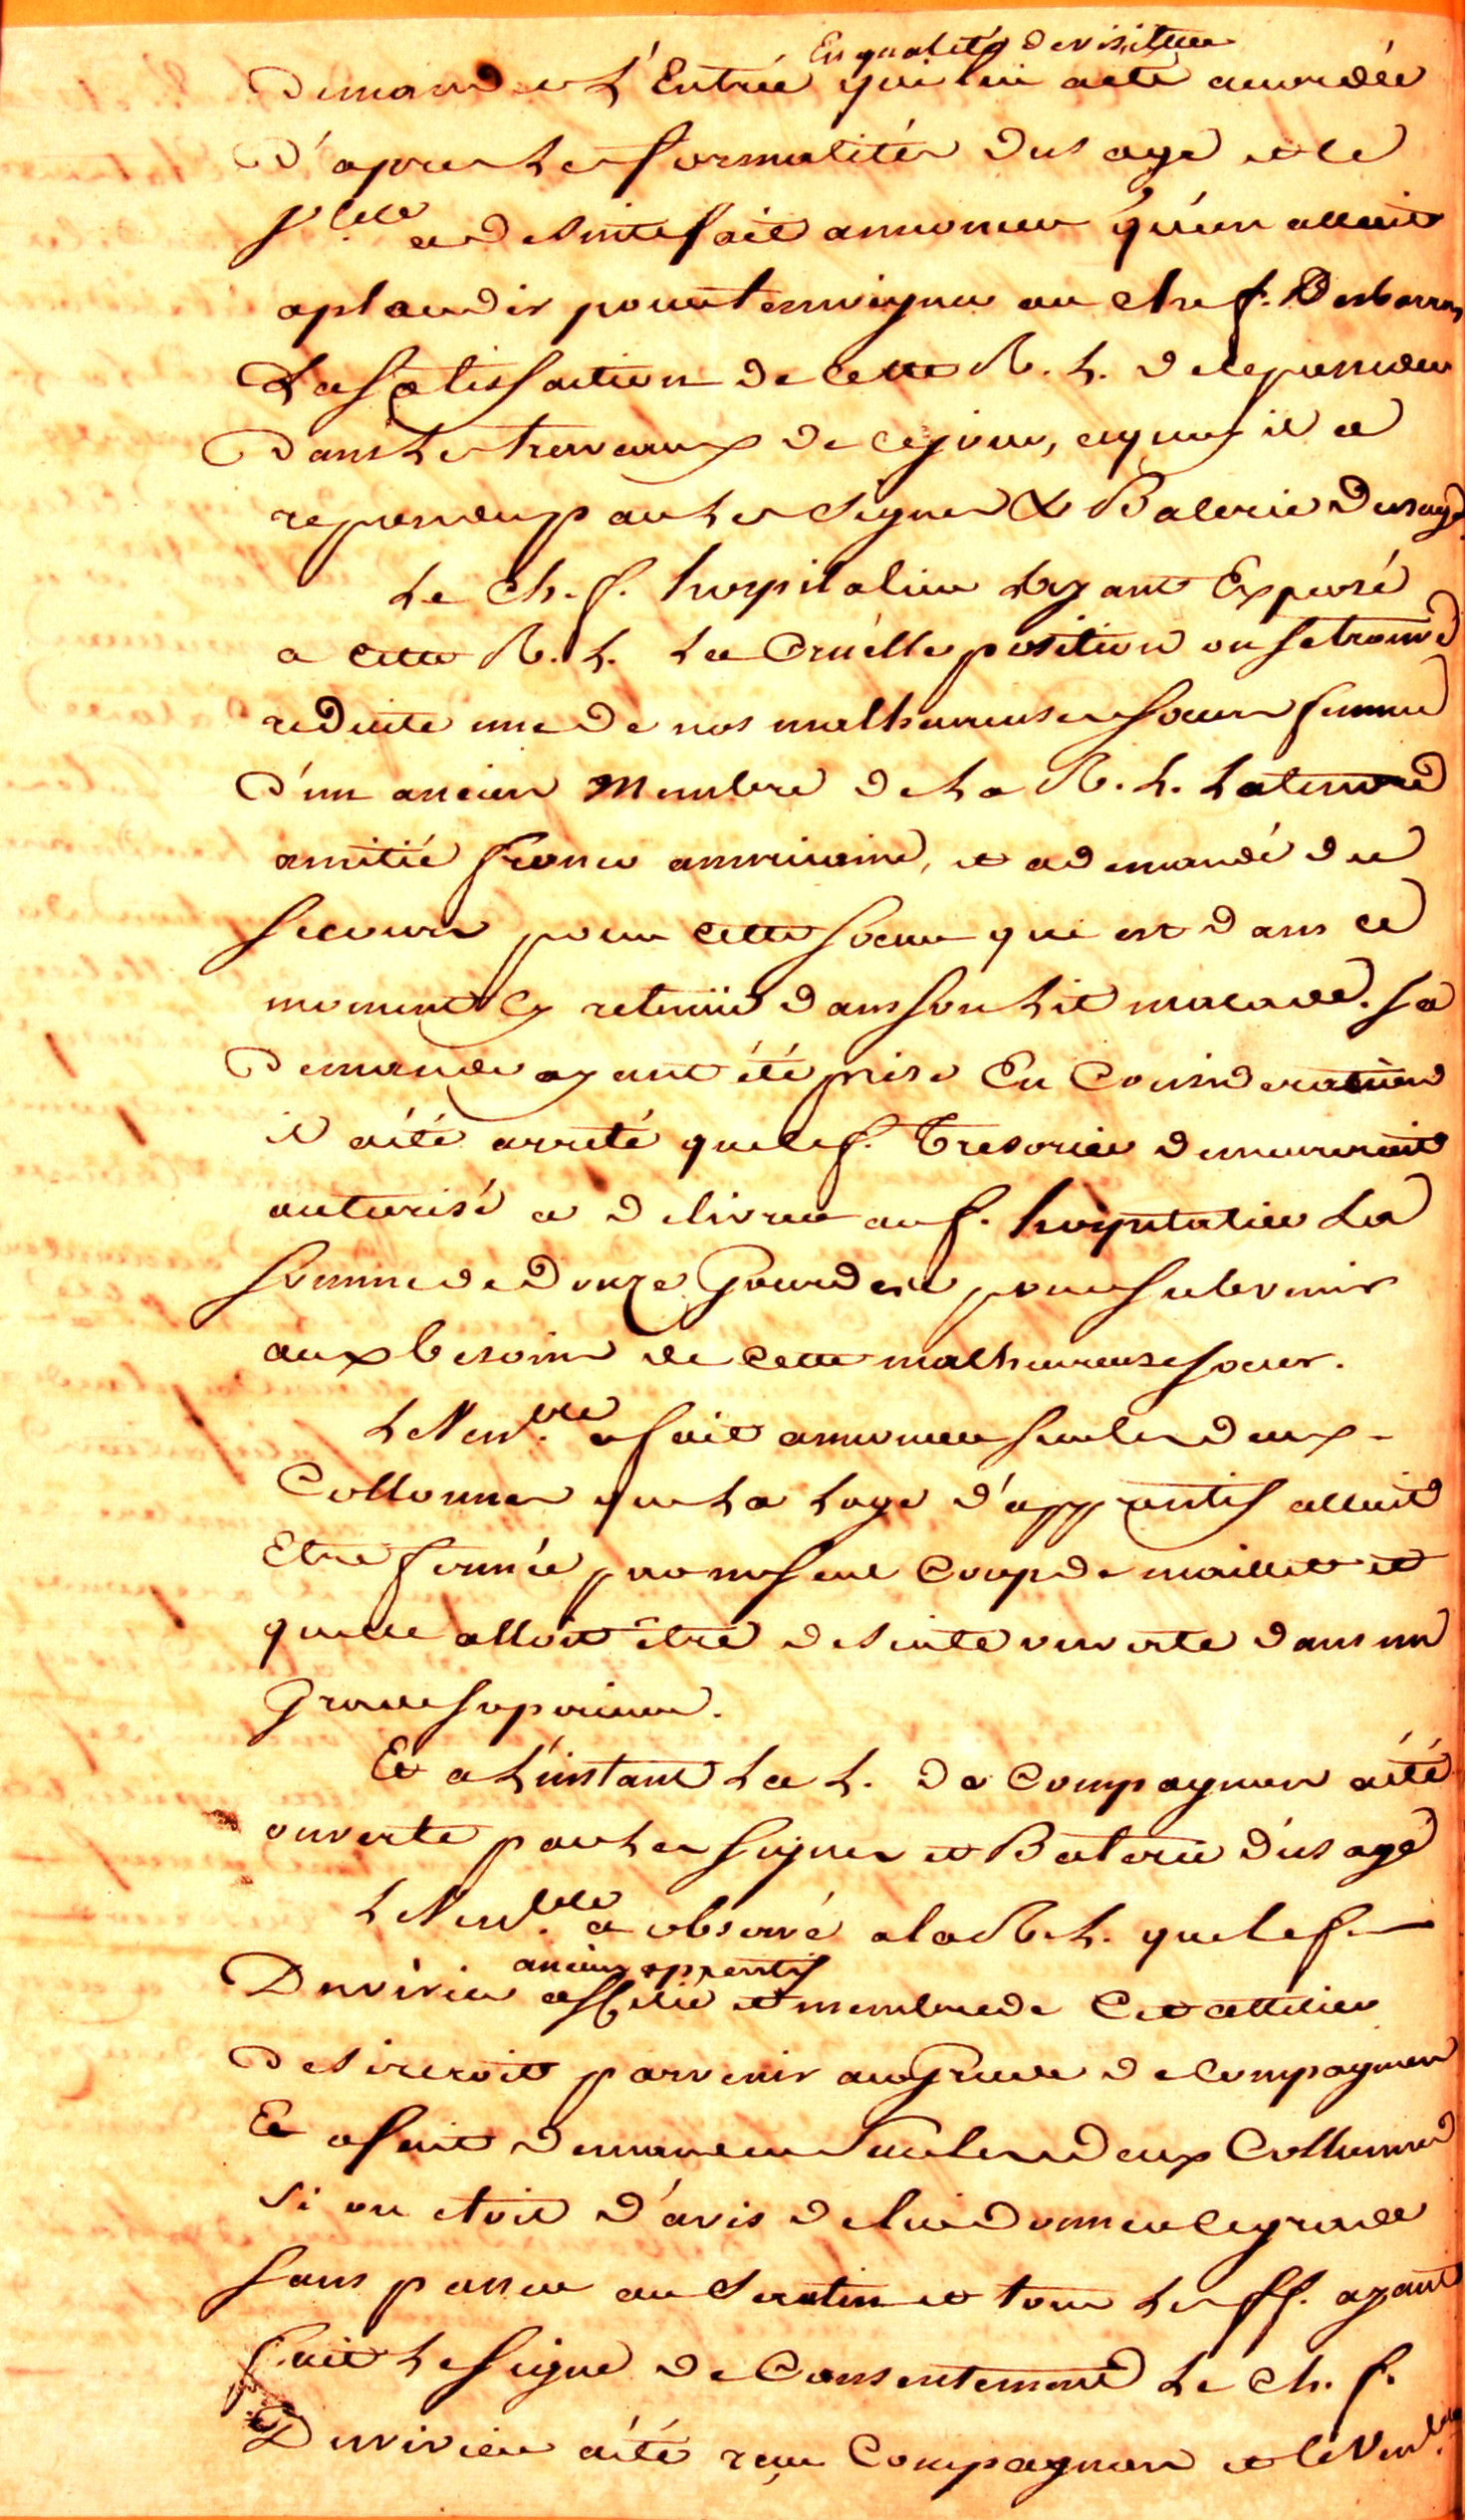 En qualité de visiteur
Demander L'Entrée qui lui a eté accordée
D'apres Les formalités Dusage et le
V.ble a Desuite fait annoncer qu'on alloit
aplaudir pour temoigner au cher f. Desbarres
La Satisfaction de Cette R. L. de le posseder
Dans Les travaux de ce jour, aquoy il a
repondu par Les Signes & Baterie Dusage.
Le Ch. f. hospitalier Layant Exposé
a Cette R. L. La Cruelle position ou Se trouve
reduite une de nos malheureuses Soeurs femme
D'un ancien Membre de La R. L. La tendre
amitié franco americaine, et a demandé du
Secours pour Cette Soeur qui est Dans ce
moment Cy retenüe Dans Son Lit malade. Sa
Demande ayant été prise En Consideration
il aété arreté que le f. Tresorier Demeureroit
autorisé a Delivrer au f. hospitalier La
Somme de Douze Gourdes pour Subvenir
aux besoins de Cette malheureuse Soeur.
Le Ven.ble a fait annoncer Sur les Deux
Collonnes que La Loge d'apprentif alloit
Etre fermée par un Seul Coup de maillet et
quelle alloit être desuite ouverte dans un
Grade Superieur.
Et a L'instant La L. de Compagnon aété
ouverte par Les Signes et Baterie d'usage
Le Ven.ble a observé a la R. L. que le f.
ancien apprentif
Duvivier affilié et membre de Cet attelier
Desireroit parvenir au Grade de Compagnon
Et a fait Demander Sur les Deux Collonnes
Si on etoit D'avis de lui Donner le grade
Sans passer au Scrutin et tous Les ff. ayant
fait Le Signe de Consentement Le Ch. f.
Duvivier aété reçu Compagnon et le Ven.ble